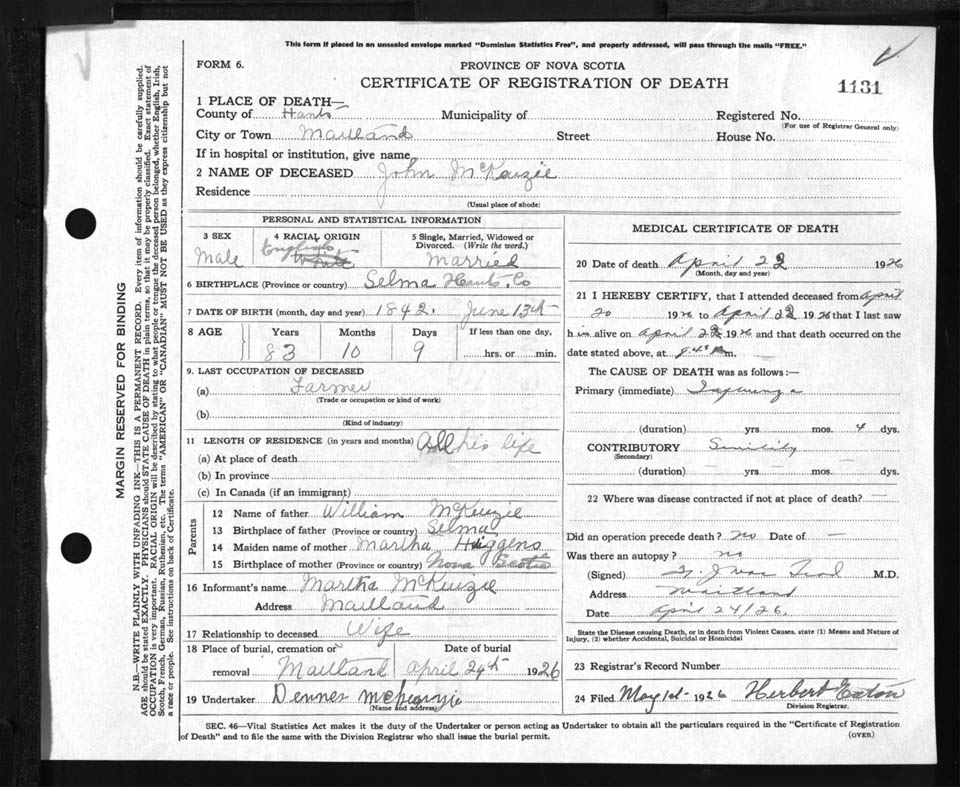 This form if placed in an unsealed envelope marked "Dominion Statistics Free", and properly addressed, will pass through the mails "FREE."
FORM 6.
PROVINCE OF NOVA SCOTIA
CERTIFICATE OF REGISTRATION OF DEATH
1131
1 PLACE OF DEATH—
County of Hants Municipality of Registered No.
(For use of Registrar General only)
City or Town Maitland Street House No.
If in hospital or institution, give name
2 NAME OF DECEASED John McKenzie
Residence
(Usual place of abode)
PERSONAL AND STATISTICAL INFORMATION
3 SEX
Male
4 RACIAL ORIGIN
English
White
5 Single, Married, Widowed or Divorced. (Write the word.)
Married
6 BIRTHPLACE (Province or country) Selma Hants. Co
7 DATE OF BIRTH (month, day and year) 1842. June 13th
8 AGE Years Months Days If less than one day,
83 10 9 hrs. or min.
9. LAST OCCUPATION OF DECEASED
(a) Farmer
(Trade or occupation or kind of work)
(b)
(Kind of industry)
11 LENGTH OF RESIDENCE (in years and months) All his life
(a) At place of death
(b) In province
(c) In Canada (if an immigrant)
Parents
12 Name of father William McKenzie
13 Birthplace of father (Province or country) Selma
14 Maiden name of mother Martha Higgens
15 Birthplace of mother (Province or country) Nova Scotia
16 Informant's name Martha McKenzie
Address Maitland
17 Relationship to deceased Wife
18 Place of burial, cremation or removal Maitland
Date of burial April 24th 1926
19 Undertaker McKenzie
(Name and address)
MEDICAL CERTIFICATE OF DEATH
20 Date of death April 22 1926
(Month, day and year)
21 I HEREBY CERTIFY, that I attended deceased from April
20 1926 to April 22 1926 that I last saw
him alive on April 22 1926 and that death occurred on
date stated above, at m.
The CAUSE OF DEATH was as follows:—
Primary (immediate) Influenza
(duration) yrs. mos. 4 dys.
CONTRIBUTORY Senility
(Secondary)
(duration) — yrs. — mos. — dys.
22 Where was disease contracted if not at place of death? —
Did an operation precede death? no Date of —
Was there an autopsy? no
(Signed) M.D.
Address Maitland
Date April 24/26.
State the Disease causing Death, or in death from Violent Causes, state (1) Means and Nature of
Injury, (2) whether Accidental, Suicidal or Homicidal
23 Registrar's Record Number
24 Filed May 1st 1926 Herbert Eaton
Division Registrar.
SEC. 46—Vital Statistics Act makes it the duty of the Undertaker or person acting as Undertaker to obtain all the particulars required in the "Certificate of Registration
of Death" and to file the same with the Division Registrar who shall issue the burial permit.
(OVER)
MARGIN RESERVED FOR BINDING
N.B.—WRITE PLAINLY WITH UNFADING INK—THIS IS A PERMANENT RECORD. Every item of information should be carefully supplied.
AGE should be stated EXACTLY. PHYSICIANS should STATE CAUSE OF DEATH in plain terms, so that it may be properly classified. Exact statement of
OCCUPATION is very important. RACIAL ORIGIN will be described by stating to what people or tongue the deceased person belonged, whether English, Irish,
Scotch, French, German, Russian, Ruthenian, etc. The terms "AMERICAN" OR "CANADIAN" MUST NOT BE USED as they express citizenship but not
a race or people. See instructions on back of Certificate.